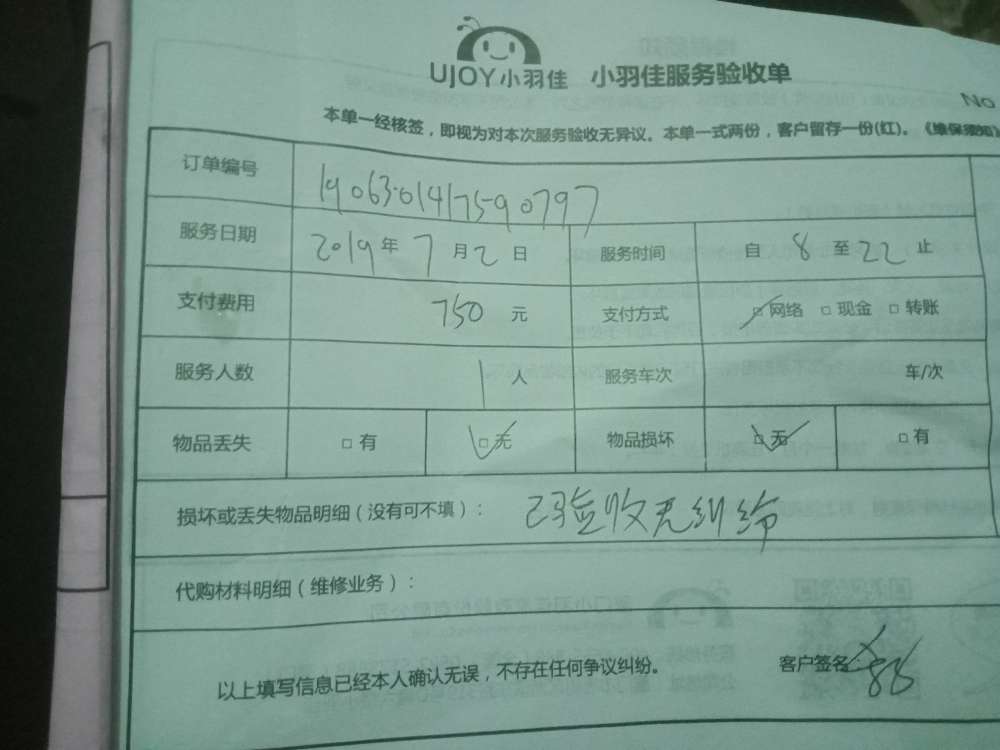 UJOY小羽佳 小羽佳服务验收单
No
本单一经核签，即视为对本次服务验收无异议。本单一式两份，客户留存一份(红)。《维保须知》
订单编号 1906301417590797
服务日期 2019 年 7 月 2 日 服务时间 自 8 至 22 止
支付费用 750 元 支付方式 □网络 □现金 □转账
服务人数 1 人 服务车次 车/次
物品丢失 □有 □无 物品损坏 □无 □有
损坏或丢失物品明细（没有可不填）： 已验收无纠纷
代购材料明细（维修业务）：
以上填写信息已经本人确认无误，不存在任何争议纠纷。 客户签名